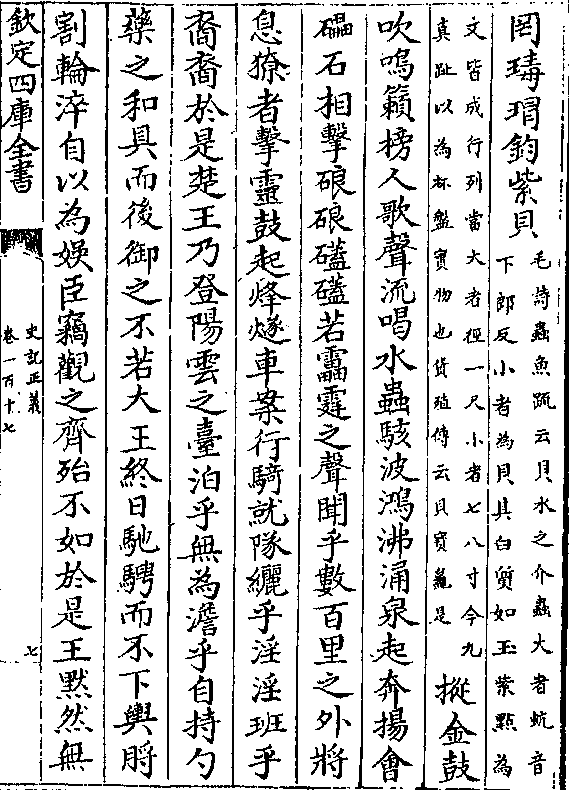 罔瑇瑁鈞紫貝
毛詩蟲魚疏云貝水之介蟲大者蚢音
下郎反小者為貝其白質如玉紫點為
文皆成行列當大者徑一尺小者七八寸今九
真趾以為杯盤寳物也貨殖傳云貝寶龜是
摐金鼓
吹嗚籟榜人歌聲流喝水蟲駭波鴻沸涌泉起奔揚會
礧石相擊硠硠磕磕若靁霆之聲聞乎數百里之外將
息獠者擊靈鼓起烽燧車案行騎就隊纚乎淫淫班乎
裔裔於是楚王乃登陽雲之臺泊乎無為澹乎自持勺
藥之和具而後御之不若大王終日馳騁而不下輿脟
割輪淬自以為娱臣竊觀之齊殆不如於是王黙然無
欽定四庫全書
史記正義
卷一百十七
七